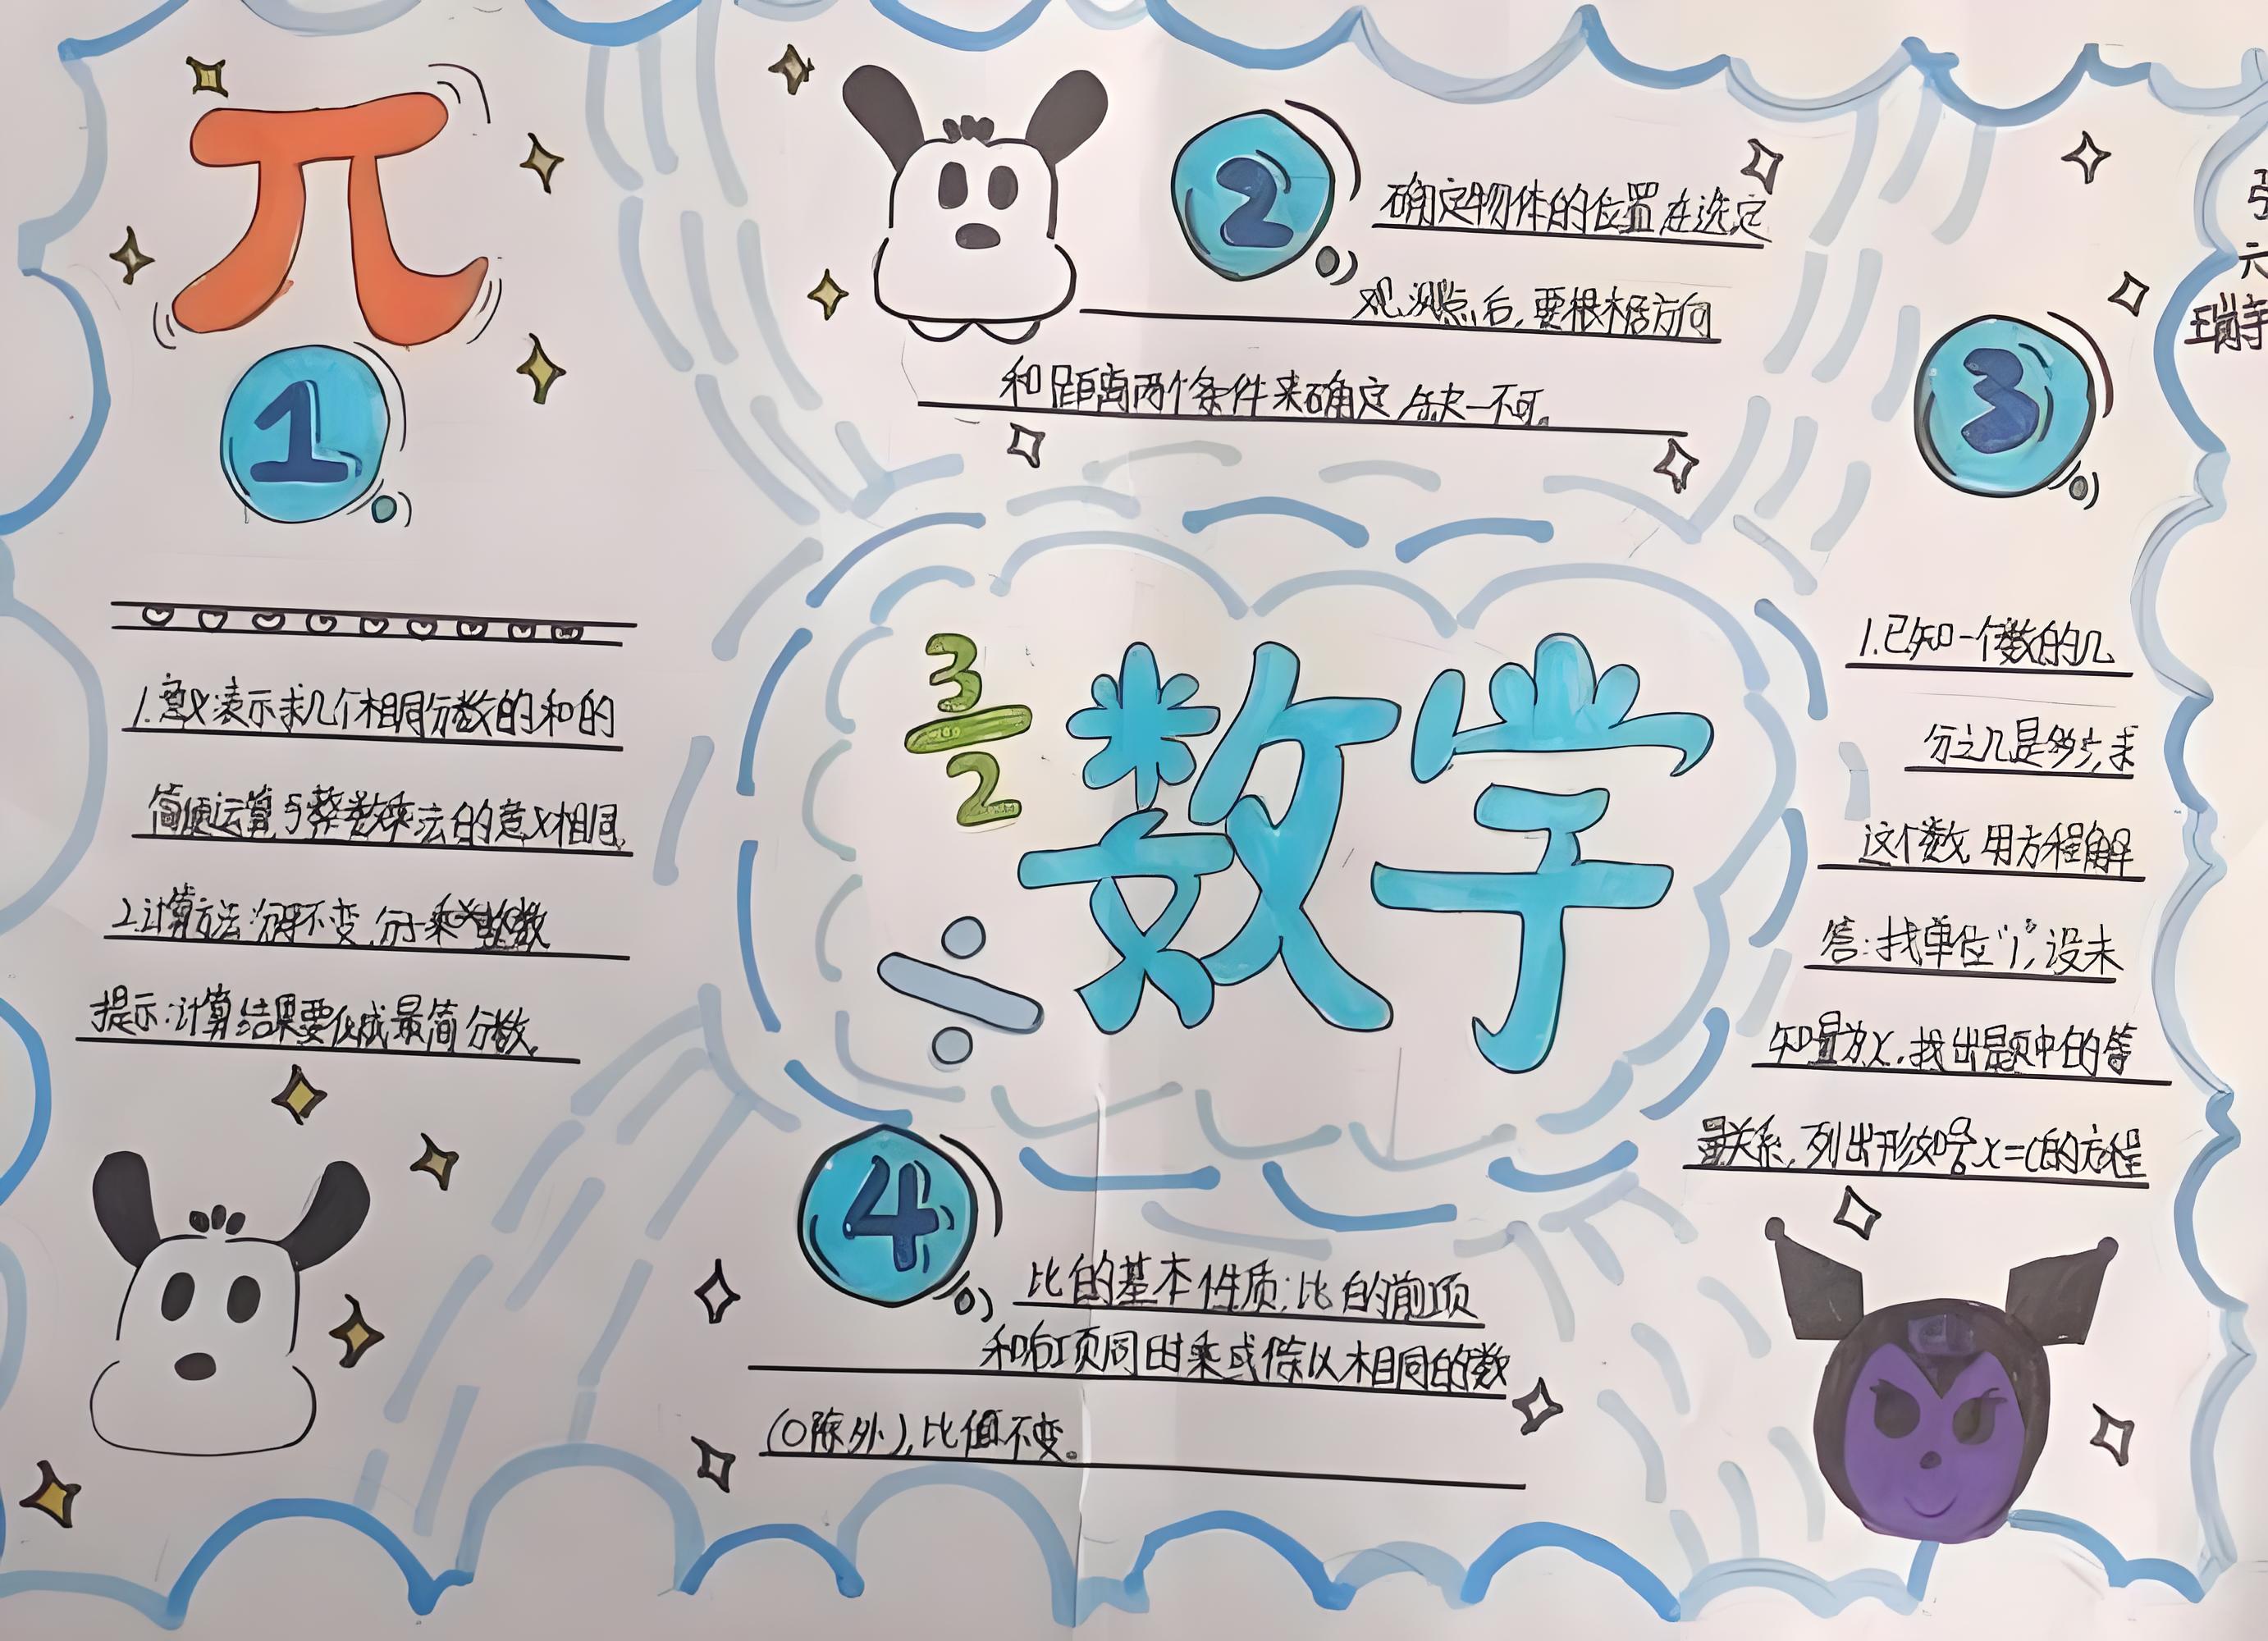 π
1
1.意义:表示求几个相同分数的和的
简便运算与整数乘法的意义相同.
2.计算方法:分母不变,分子乘整数
提示:计算结果要化成最简分数.
2
确定物体的位置在选定
观测点后,要根据方向
和距离两个条件来确定,缺一不可。
3
1.已知一个数的几
分之几是多少,求
这个数,用方程解
答:找单位“1”,设未
知量为x,找出题中的等
量关系,列出形如 x=c的方程
3
2
÷
数学
4
比的基本性质:比的前项
和后项同时乘或除以相同的数
(0除外),比值不变。
六